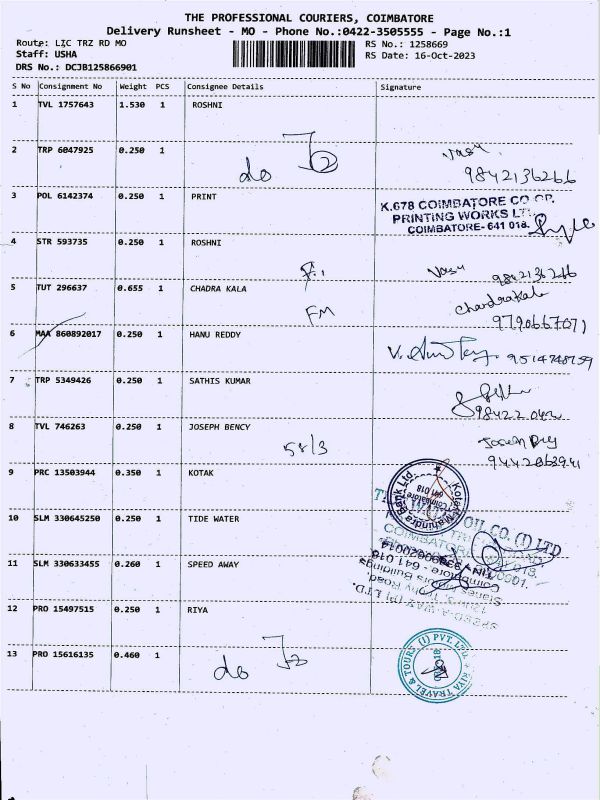 THE PROFESSIONAL COURIERS, COIMBATORE
Delivery Runsheet - MO - Phone No.:0422-3505555 - Page No.:1
Route: LIC TRZ RD MO RS No.: 1258669
Staff: USHA RS Date: 16-Oct-2023
DRS No.: DCJB125866901
S No Consignment No Weight PCS Consignee Details Signature
1 TVL 1757643 1.530 1 ROSHNI
2 TRP 6047925 0.250 1 do Vasu
9842136266
3 POL 6142374 0.250 1 PRINT
K.678 COIMBATORE CO OP.
PRINTING WORKS LT
COIMBATORE- 641 018.
4 STR 593735 0.250 1 ROSHNI
Vasu 9842136266
5 TUT 296637 0.655 1 CHADRA KALA
Chandrakala
FM 9790667071
6 MAA 860892017 0.250 1 HANU REDDY
9514748759
7 TRP 5349426 0.250 1 SATHIS KUMAR
8 TVL 746263 0.250 1 JOSEPH BENCY
58/3 Joseph
9442063941
9 PRC 13503944 0.350 1 KOTAK
Kotak Mahindra Bank Ltd.
Coimbatore
641 018
10 SLM 330645250 0.250 1 TIDE WATER
OIL CO. (I) LTD
11 SLM 330633455 0.260 1 SPEED AWAY
SPEED-A-WAY (P) LTD.
Stanes Buildings
Coimbatore - 641 018
12 PRO 15497515 0.250 1 RIYA
13 PRO 15616135 0.460 1 do
RIYA TRAVEL & TOURS (I) PVT. LTD.